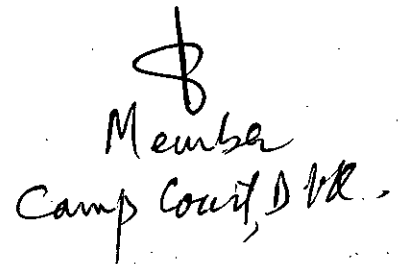 Member
Camp Court,